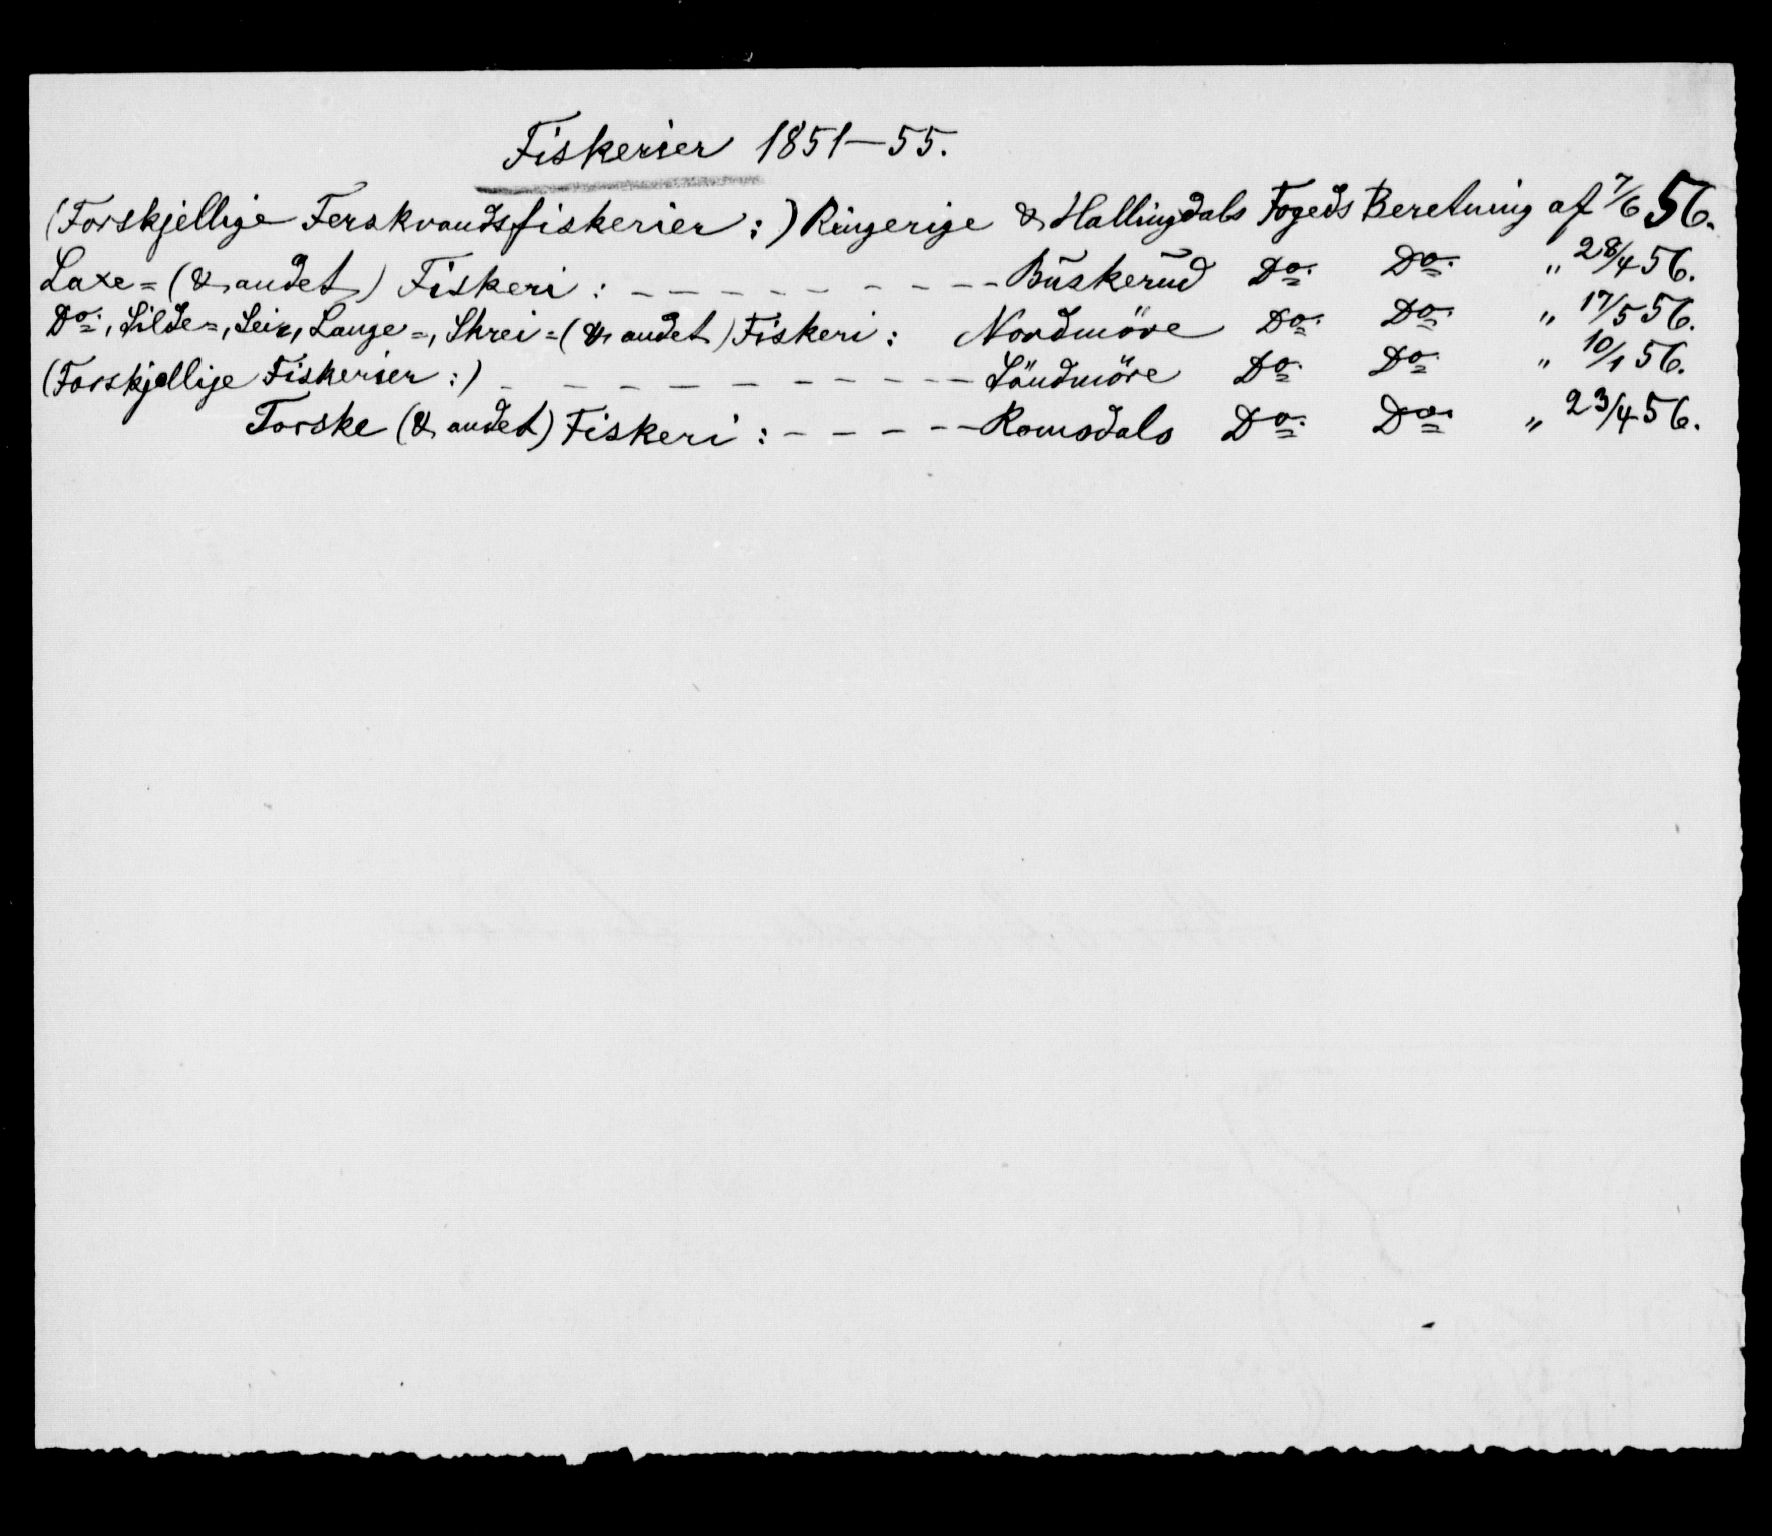 Fiskerier 1851—55.
(Forskjellige Ferskvandsfiskerier:) Ringerige & Hallingdals Fogeds Beretning af 7/6 56.
Laxe= (& andet) Fiskeri: – – – – – – – – – Büskerüd Do. Do. „ 28/4 56.
Do., Silde=, Sei=, Lange=, Skrei= (& andet) Fiskeri: Nordmöre Do. Do. „ 17/5 56.
(Forskjellige Fiskerier:) – – – – – – – – – – Söndmöre Do. Do. „ 10/1 56.
Torske (& andet) Fiskeri: – – – – – Romsdals Do. Do. „ 23/4 56.